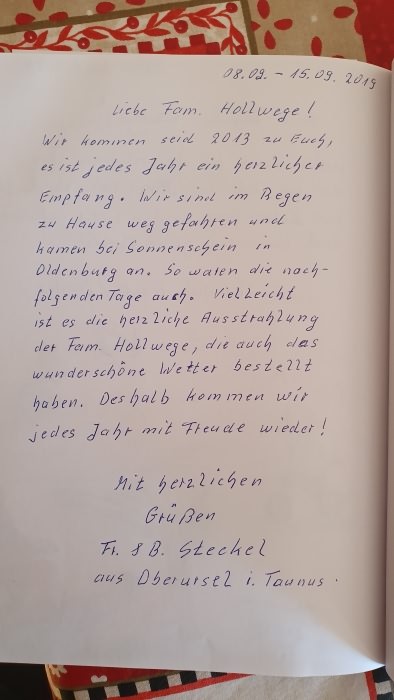 08.09. - 15.09. 2019
Liebe Fam. Hollwege!
Wir kommen seid 2013 zu Euch,
es ist jedes Jahr ein herzlicher
Empfang. Wir sind im Regen
zu Hause weg gefahren und
kamen bei Sonnenschein in
Oldenburg an. So waren die nach-
folgenden Tage auch. Vielleicht
ist es die herzliche Ausstrahlung
der Fam. Hollwege, die auch das
wunderschöne Wetter bestellt
haben. Deshalb kommen wir
jedes Jahr mit Freude wieder!
Mit herzlichen
Grüßen
Fr. & B. Steckel
aus Oberursel i. Taunus.